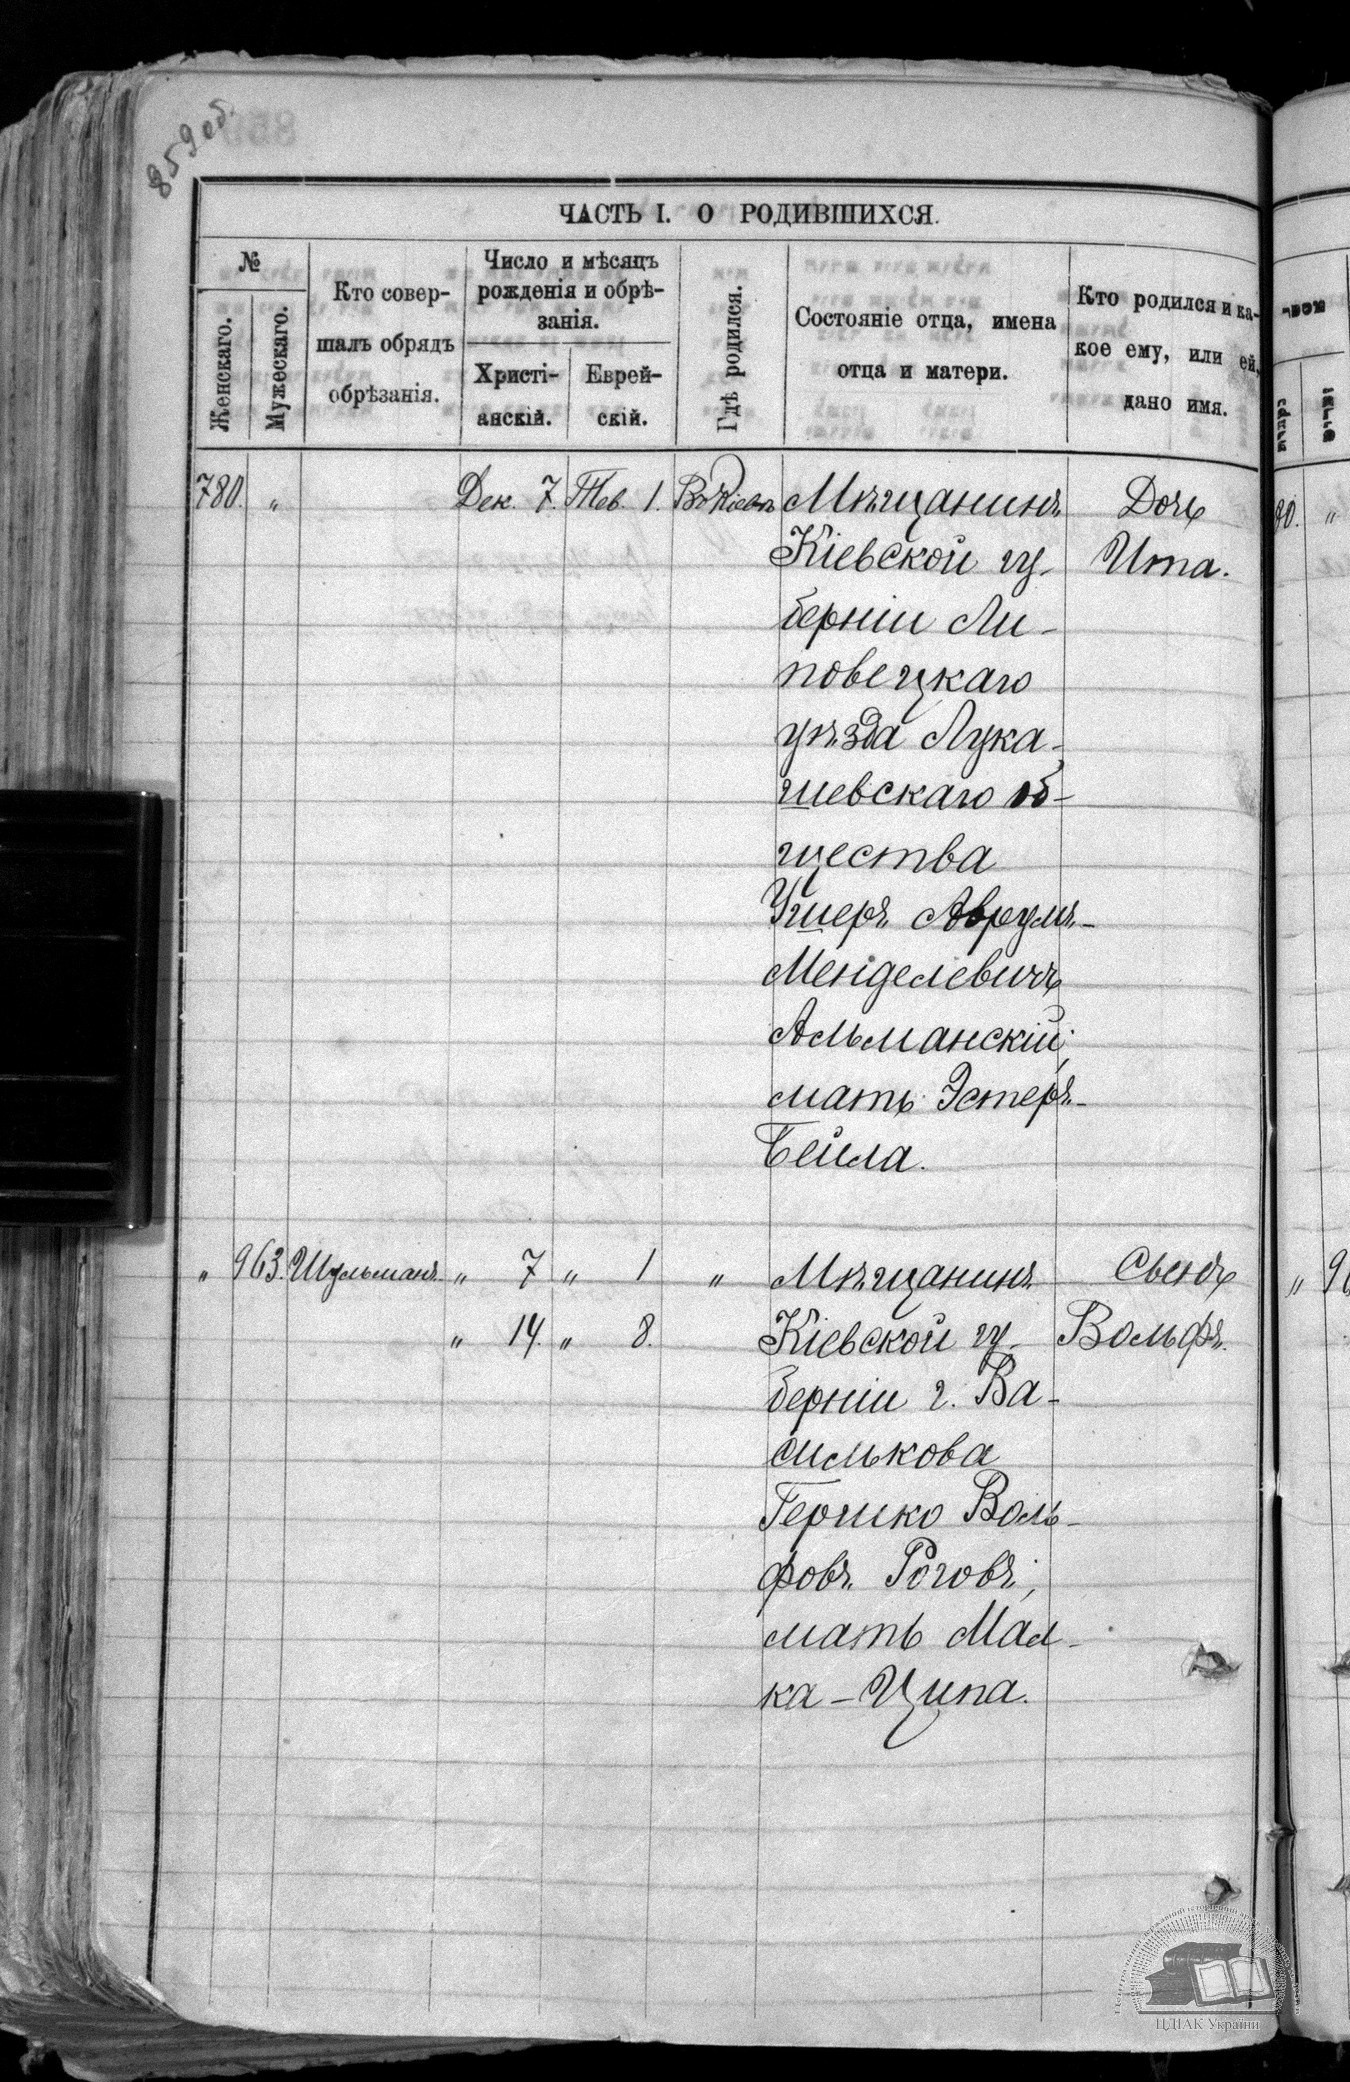 859 об.
ЧАСТЬ I. О РОДИВШИХСЯ.
№
Женскаго.
Мужескаго.
Кто совер-
шалъ обрядъ
обрѣзанія.
Число и мѣсяцъ
рожденія и обрѣ-
занія.
Христі-
анскій.
Еврей-
скій.
Гдѣ родился.
Состояніе отца, имена
отца и матери.
Кто родился и ка-
кое ему, или ей,
дано имя.
780. „ Дек. 7. Тев. 1. Въ Кіевѣ Мѣщанинъ Дочь
Кіевской гу- Ита.
берніи Ли-
повецкаго
уѣзда Лука-
шевскаго об-
щества
Ушеръ Аврумъ-
Менделевичъ
Альманскій;
мать Эстеръ-
Бейла.
„ 963. Шульманъ. „ 7 „ 1 „ Мѣщанинъ Сынъ
„ 14. „ 8. Кіевской гу- Вольфъ.
берніи г. Ва-
силькова
Гершко Воль-
фовъ Роговъ;
мать Мал-
ка-Ципа.
ЦДІАК України